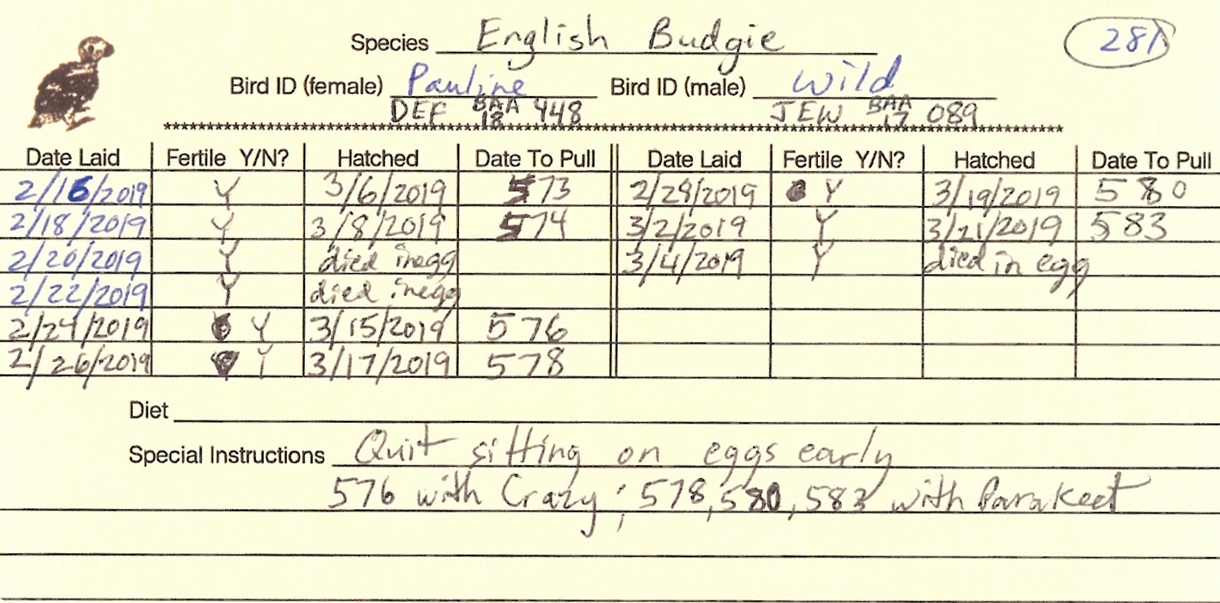 Species English Budgie 281
Bird ID (female) Pauline Bird ID (male) Wild
DEF BAA 18 448 JEW BAA 17 089
************************************************************
Date Laid Fertile Y/N? Hatched Date To Pull Date Laid Fertile Y/N? Hatched Date To Pull
2/16/2019 Y 3/6/2019 573 2/28/2019 Y 3/19/2019 580
2/18/2019 Y 3/8/2019 574 3/2/2019 Y 3/21/2019 583
2/20/2019 Y died in egg 3/4/2019 Y died in egg
2/22/2019 Y died in egg
2/24/2019 Y 3/15/2019 576
2/26/2019 Y 3/17/2019 578
Diet
Special Instructions Quit sitting on eggs early
576 with Crazy; 578, 580, 583 with Parakeet